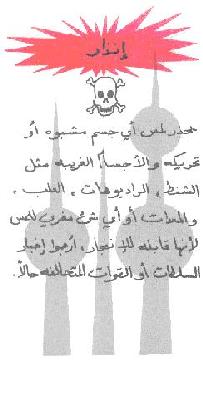 إنذار
يحذر لمس أي جسم مشبوه أو
تحريكه والأجسام الغريبه مثل
الشنط، الراديوهات، العلب،
والمعدات أو أي شيء مغري للمس
لأنها قابله للإنفجار. أرجوا إخبار
السلطات أو القوات المتحالفه حالاً.